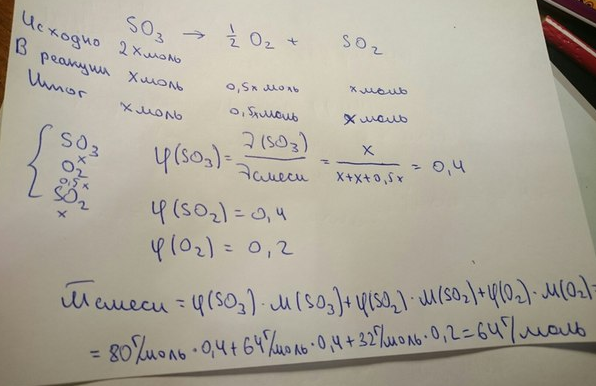 SO₃ → 1/2 O₂ + SO₂
Исходно 2х моль
В реакции х моль 0,5х моль х моль
Итог х моль 0,5х моль х моль
{ SO₃ x
O₂ 0,5x
SO₂ x
φ(SO₃) = ν(SO₃) / ν смеси = x / x+x+0,5x = 0,4
φ(SO₂) = 0,4
φ(O₂) = 0,2
M смеси = φ(SO₃) · M(SO₃) + φ(SO₂) · M(SO₂) + φ(O₂) · M(O₂) =
= 80 г/моль · 0,4 + 64 г/моль · 0,4 + 32 г/моль · 0,2 = 64 г/моль